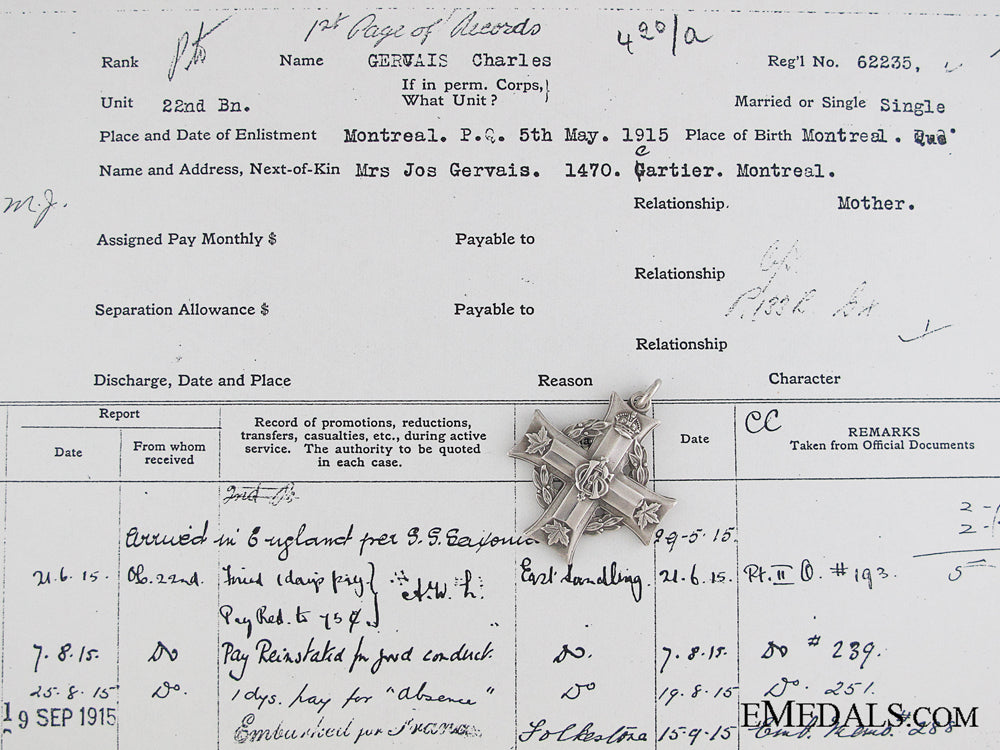 1st Page of Records
420/a
Rank Pte Name GERVAIS Charles Reg'l No. 62235,
If in perm. Corps,}
What Unit?
Unit 22nd Bn. Married or Single Single
Place and Date of Enlistment Montreal. P.Q. 5th May. 1915 Place of Birth Montreal. Que.
Name and Address, Next-of-Kin Mrs Jos Gervais. 1470. Cartier. Montreal.
Relationship. Mother.
M.J.
Assigned Pay Monthly $ Payable to
Relationship
Separation Allowance $ Payable to
Relationship
Discharge, Date and Place Reason Character
Report
Date
From whom
received
Record of promotions, reductions,
transfers, casualties, etc., during active
service. The authority to be quoted
in each case.
Date
CC
REMARKS
Taken from Official Documents
Arrived in England per S.S. Saxonia 29-5-15.
21.6.15. Oc. 22nd. Fined 1 days pay} A.W.L. East Sandling. 21.6.15. Pt. II O. #193.
Pay Red. to 75¢
7.8.15. Do Pay Reinstated for good conduct. Do. 7.8.15. Do # 239.
25.8.15 Do. 1 dys. pay for "Absence" Do 19.8.15 Do. 251.
19 SEP 1915 Embarked for France Folkestone 15-9-15 Emb. Memb. # 288
2-
2-1
5
EMEDALS.COM